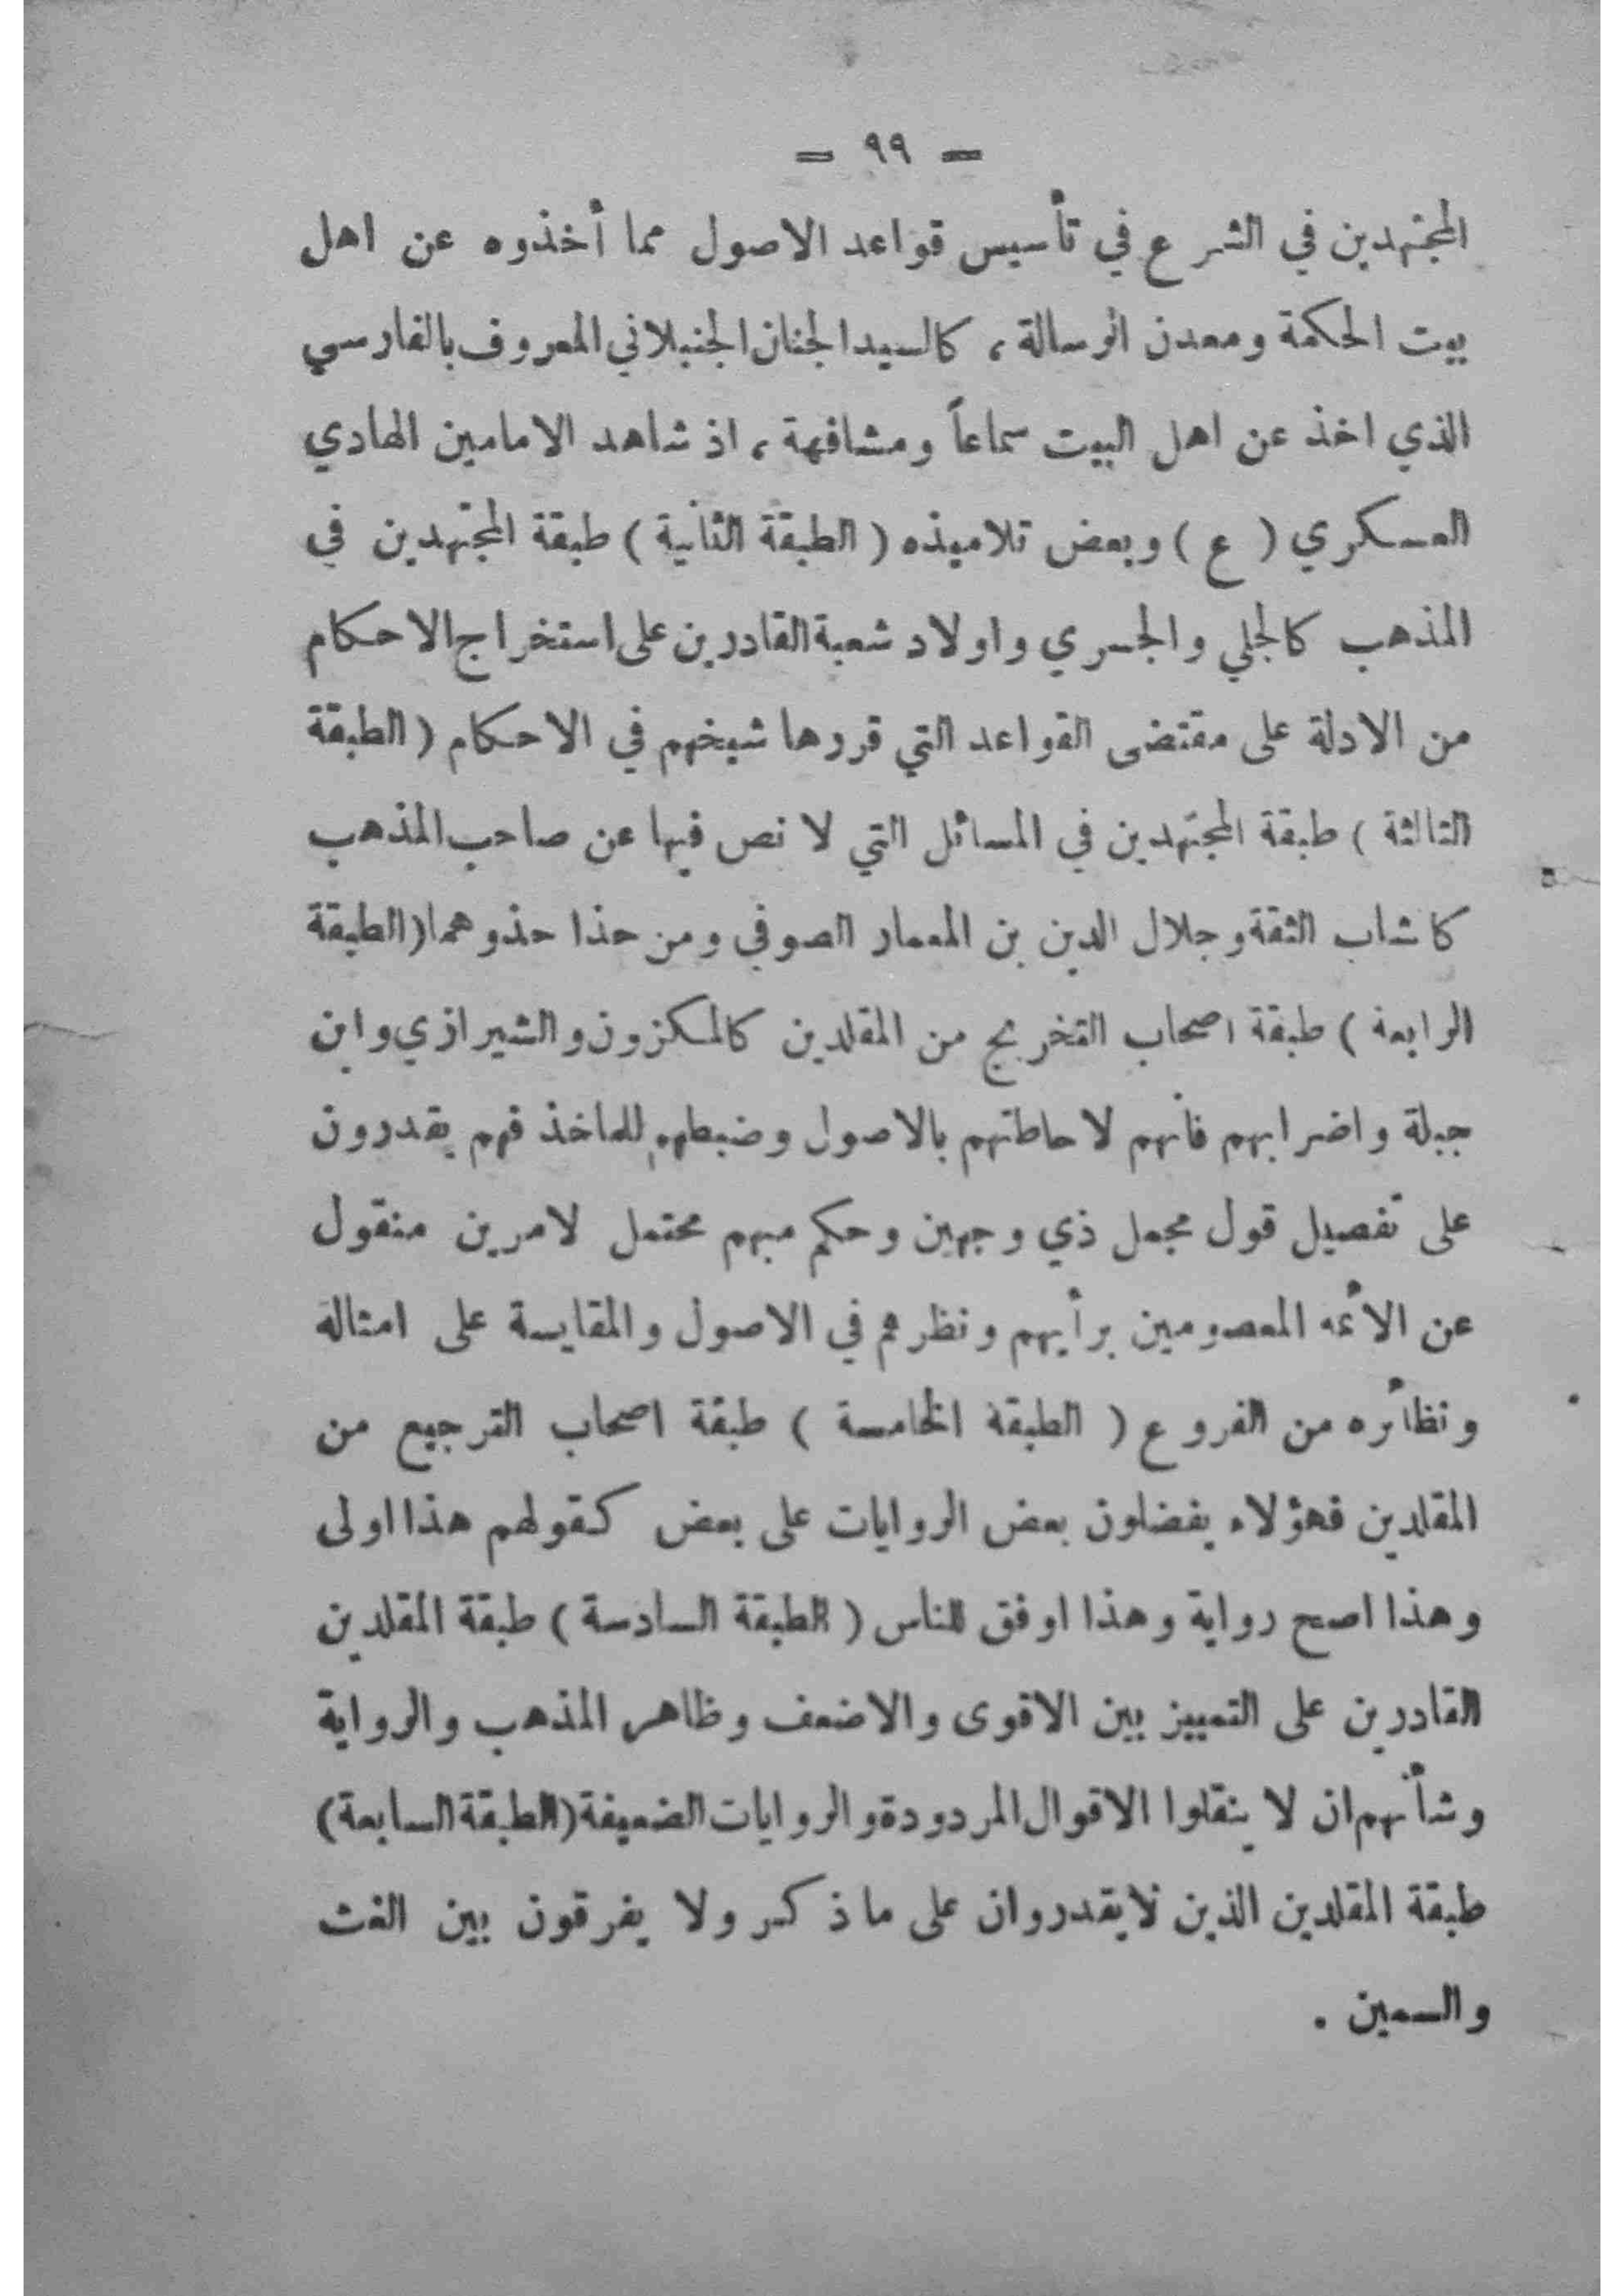 — ٩٩ —
المجتهدين في الشرع في تأسيس قواعد الاصول مما أخذوه عن اهل
بيت الحكمة ومعدن الرسالة ، كالسيد الجنان الجنبلاني المعروف بالفارسي
الذي اخذ عن اهل البيت سماعاً ومشافهة ، اذ شاهد الامامين الهادي
العسكري ( ع ) وبعض تلاميذه ( الطبقة الثانية ) طبقة المجتهدين في
المذهب كالجلي والجسري واولاد شعبة القادرين على استخراج الاحكام
من الادلة على مقتضى القواعد التي قررها شيخهم في الاحكام ( الطبقة
الثالثة ) طبقة المجتهدين في المسائل التي لا نص فيها عن صاحب المذهب
كاشاب الثقة وجلال الدين بن المعمار الصوفي ومن حذا حذوهما ( الطبقة
الرابعة ) طبقة اصحاب التخريج من المقلدين كالمكزون والشيرازي وابن
جبلة واضرابهم فأنهم لاحاطتهم بالاصول وضبطهم للماخذ فهم يقدرون
على تفصيل قول مجمل ذي وجهين وحكم مبهم محتمل لامرين منقول
عن الأئمه المعصومين برأيهم ونظرهم في الاصول والمقايسة على امثاله
ونظائره من الفروع ( الطبقة الخامسة ) طبقة اصحاب الترجيع من
المقلدين فهؤلاء يفضلون بعض الروايات على بعض كقولهم هذا اولى
وهذا اصح رواية وهذا اوفق للناس ( الطبقة السادسة ) طبقة المقلدين
القادرين على التمييز بين الاقوى والاضعف وظاهر المذهب والرواية
وشأنهم ان لا ينقلوا الاقوال المردودة والروايات الضعيفة ( الطبقة السابعة )
طبقة المقلدين الذين لايقدروان على ما ذكر ولا يفرقون بين الغث
والسمين .